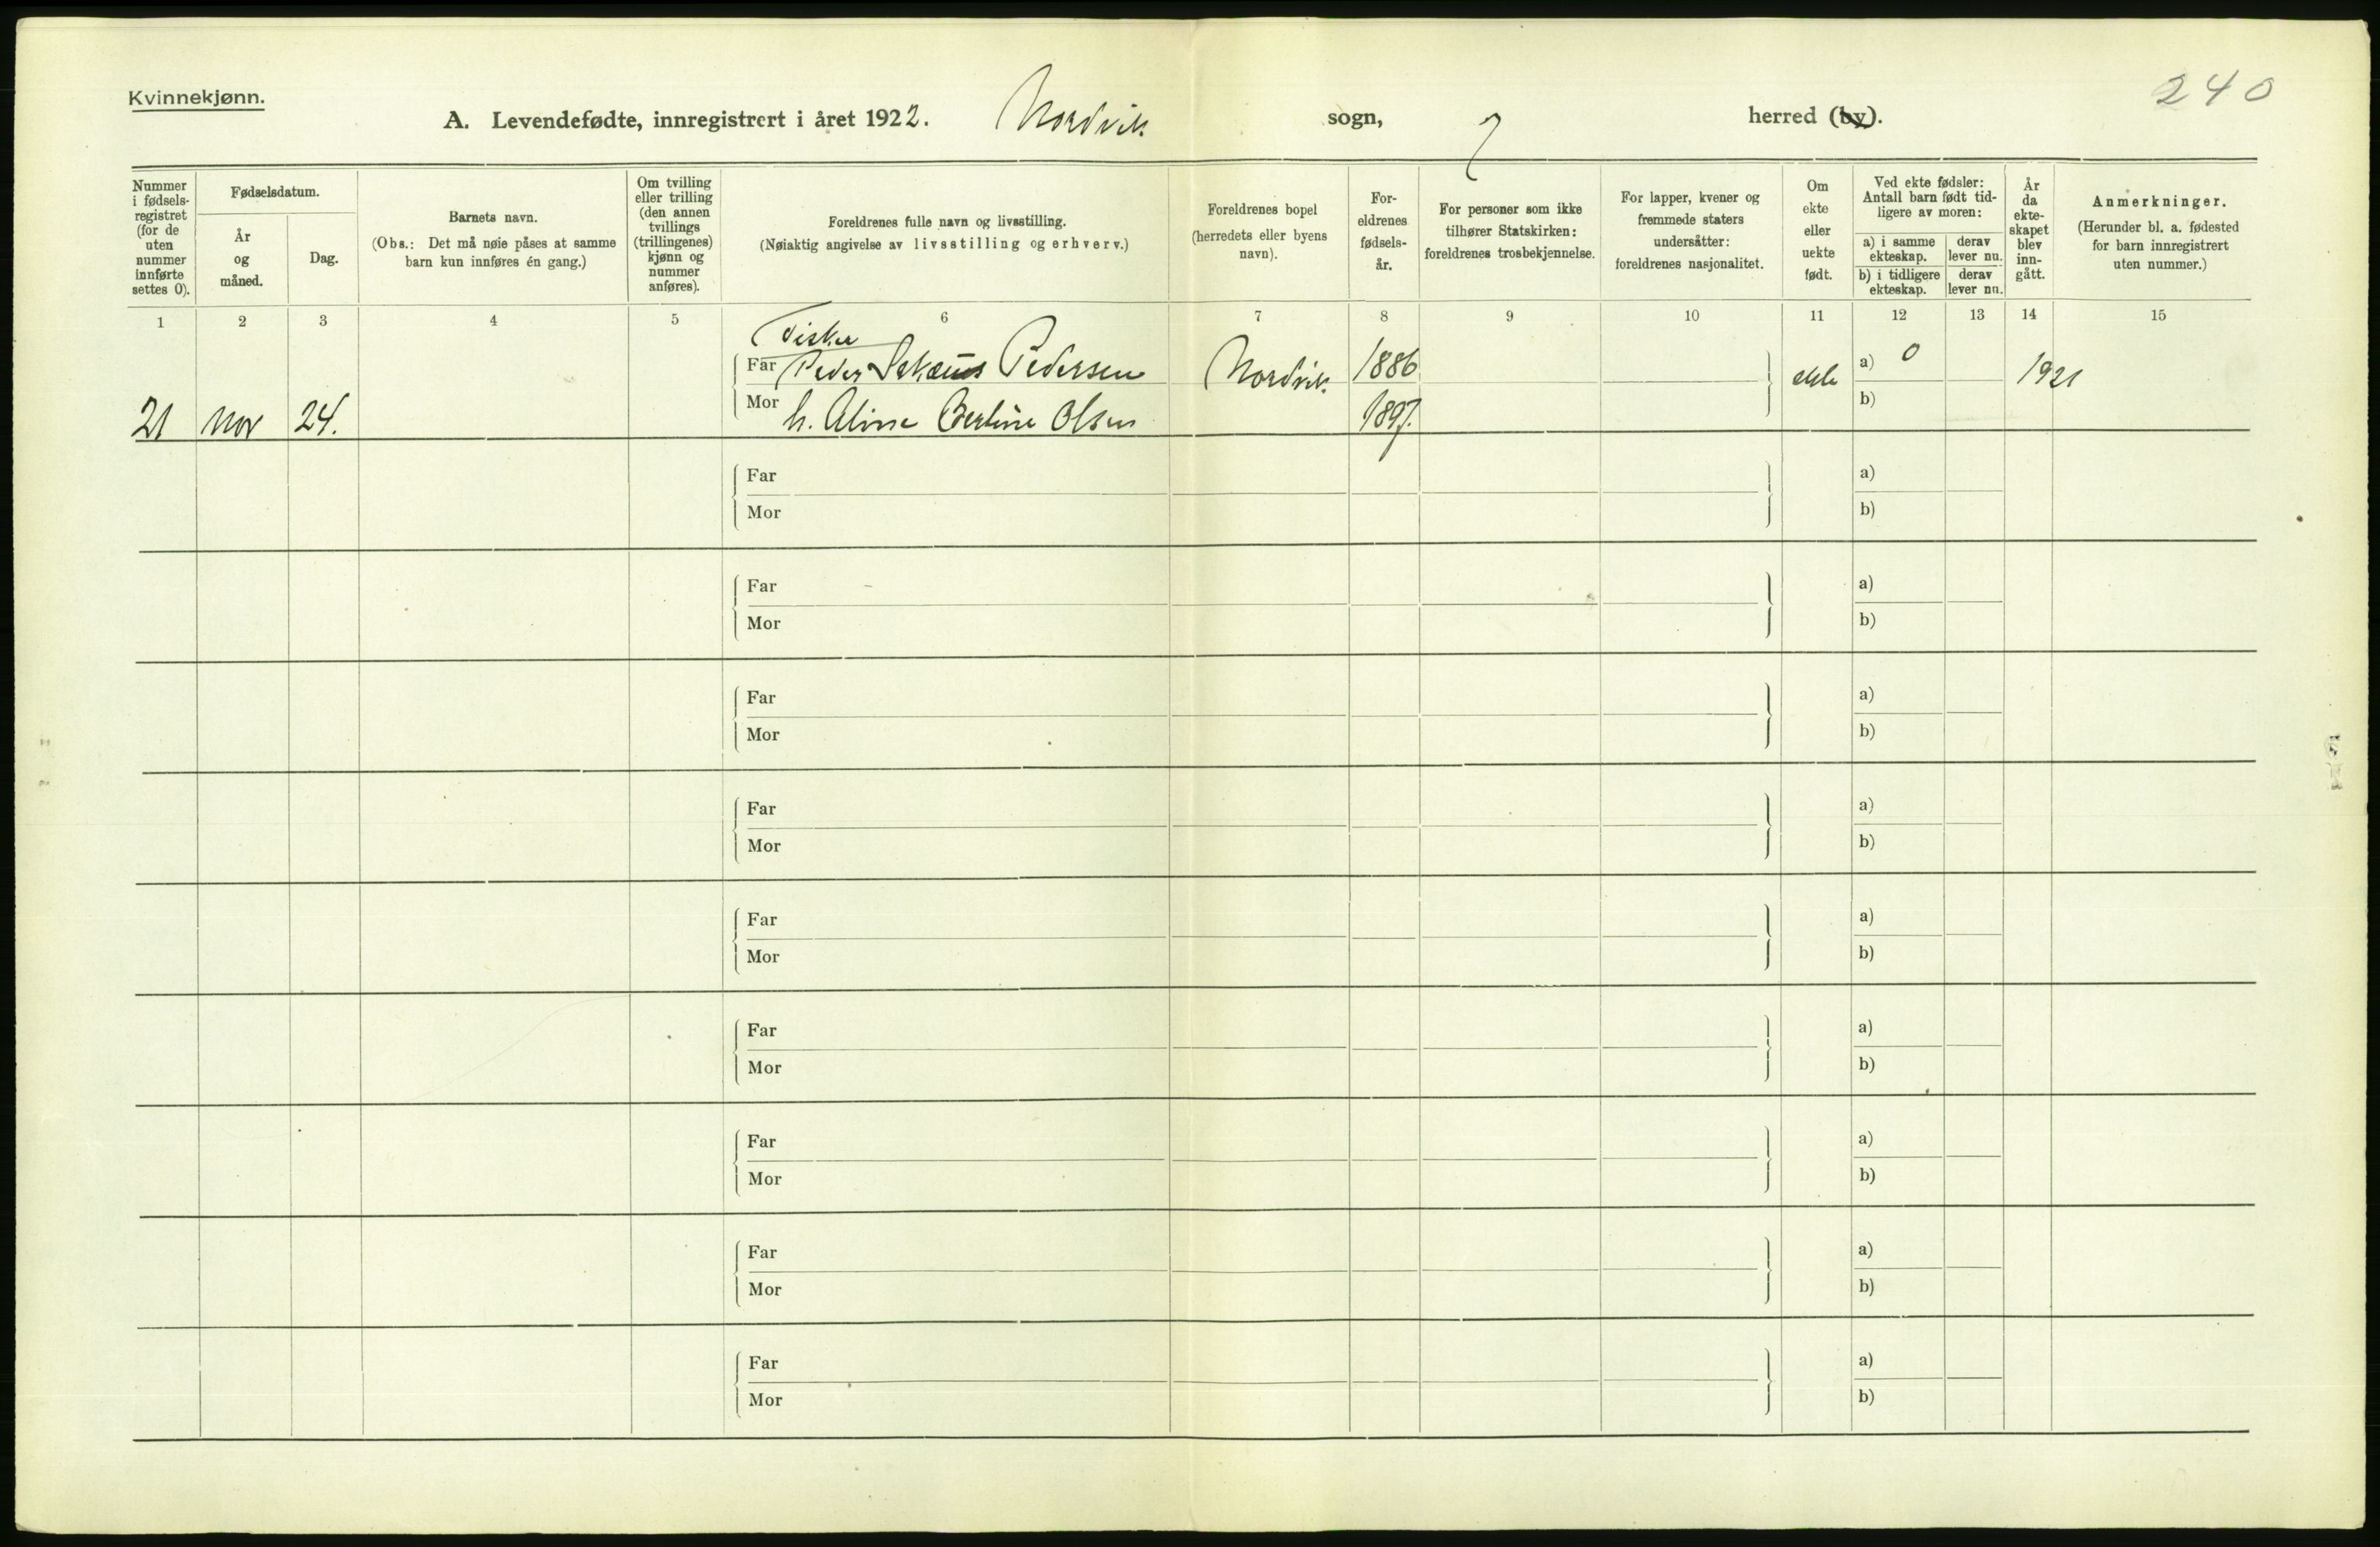 240
Kvinnekjønn.
A. Levendefødte, innregistrert i året 1922. Nordvik sogn, herred (by).
Nummer i fødsels-registret (for de uten nummer innførte settes 0).
Fødselsdatum.
År og måned.
Dag.
Barnets navn.
(Obs.: Det må nøie påses at samme barn kun innføres én gang.)
Om tvilling eller trilling (den annen tvillings (trillingenes) kjønn og nummer anføres).
Foreldrenes fulle navn og livsstilling.
(Nøiaktig angivelse av livsstilling og erhverv.)
Foreldrenes bopel (herredets eller byens navn).
For-eldrenes fødsels-år.
For personer som ikke tilhører Statskirken: foreldrenes trosbekjennelse.
For lapper, kvener og fremmede staters undersåtter: foreldrenes nasjonalitet.
Om ekte eller uekte født.
Ved ekte fødsler: Antall barn født tid-ligere av moren:
a) i samme ekteskap.
derav lever nu.
b) i tidligere ekteskap.
derav lever nu.
År da ekte-skapet blev inn-gått.
Anmerkninger.
(Herunder bl. a. fødested for barn innregistrert uten nummer.)
1 2 3 4 5 6 7 8 9 10 11 12 13 14 15
Fisker
Far Peder Pedersen Nordvik 1886 ekte a) 0 1921
21 Nov 24. Mor h. Aline Bertine Olsen 1897. b)
Far a)
Mor b)
Far a)
Mor b)
Far a)
Mor b)
Far a)
Mor b)
Far a)
Mor b)
Far a)
Mor b)
Far a)
Mor b)
Far a)
Mor b)
Far a)
Mor b)